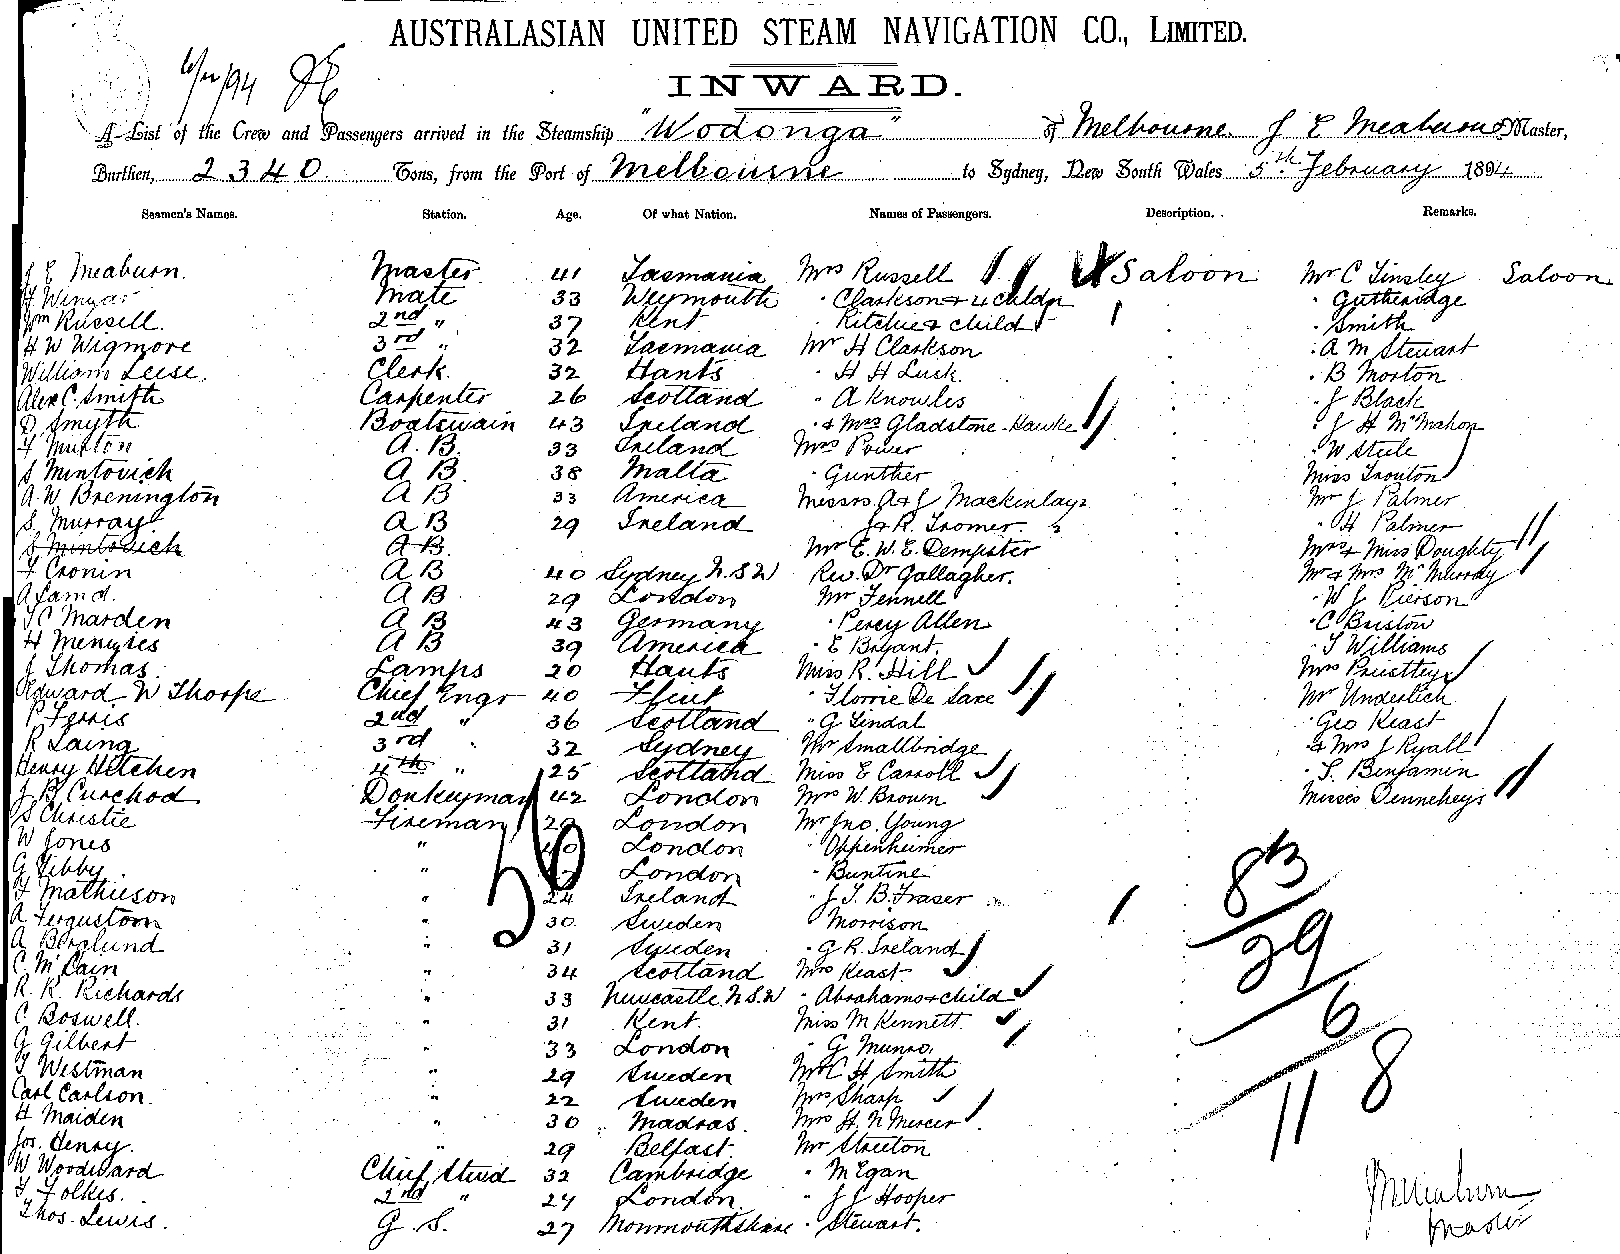 AUSTRALASIAN UNITED STEAM NAVIGATION CO., LIMITED.
INWARD.
A List of the Crew and Passengers arrived in the Steamship "Wodonga" of Melbourne J E Meaburn Master,
Burthen, 2340 Tons, from the Port of Melbourne to Sydney, New South Wales 5th February 1894
Seamen's Names. Station. Age. Of what Nation. Names of Passengers. Description. Remarks.
J E Meaburn. Master 41 Tasmania Mrs Russell Saloon Mr C Tinsley Saloon
Mate 33 Weymouth " Clarkson & 4 childn " Gutheridge
Wm Russell. 2nd " 37 Kent " Ritchie & child " Smith
H W Wigmore 3rd " 32 Tasmania Mr H Clarkson " A M Stewart
William Leese. Clerk. 32 Hants " H H Lusk. " B Morton
Alex C. Smith Carpenter 26 Scotland " A Knowles " J Black
D Smyth Boatswain 43 Ireland " & Mrs Gladstone Hawke " J H McMahon
A.B. 33 Ireland Mrs Power " W Steele
S Mintovich A B 38 Malta " Gunther Miss Trouton
A W Brenington A B 33 America Messrs A & J Mackinlay 2 Mr J Palmer
S. Murray A B 29 Ireland " J & R. Tromer 2 " H Palmer
S Mintovich A B. Mr E. W. E. Dempster Mrs & Miss Doughty
F Cronin A B 40 Sydney N.S.W Rev. Dr Gallagher. Mr & Mrs McMurray
A Lamd. A B 29 London Mr Fennell " W J Pierson
T C Marden A B 43 Germany " Percy Allen " C Bristow
H Menzies A B 39 America " E Bryant. " T Williams
J Thomas. Lamps 20 Hants Miss R. Hill Mrs Priestley
Edward W Thorpe Chief Engr 40 Flint " Florrie De Saxe Mr Underlich
P Ferris 2nd " 36 Scotland " G Lindal " Geo Keast
R Laing 3rd " 32 Sydney Mr Smallbridge " & Mrs J Ryall
Henry Hitchen 4th " 25 Scotland Miss E Carroll " S. Benjamin
J B Curchod Donkeyman 42 London Mrs W. Brown Misses Dennehys
S Christie Fireman 29 London Mr Jno. Young
W Jones " 40 London " Oppenheimer
G Tibby " London " Buntine
F Mathieson " 24 Ireland " J. T. B. Fraser
A Fergustom " 30 Sweden " Morrison
A Berglund " 31 Sweden " G R. Ireland
C McCain " 34 Scotland Mrs Keast
R. R. Richards " 33 Newcastle N.S.W " Abrahams & child
C Boswell. " 31 Kent. Miss M Kennett
G Gilbert " 33 London " G Munro.
T Westman " 29 Sweden Mr C H Smith
Carl Carlson. " 22 Sweden Mrs Sharp
H Maiden " 30 Madras. Mrs H. N Mercer
Jos. Henry. " 29 Belfast. Mr Streeton
W Woodward Chief Stewd 32 Cambridge " M Egan
T Folkes. 2nd " 24 London " J J Hooper
Thos. Lewis. G. S. 27 Monmouthshire " Stewart.
56
83
29
6
118
J E Meaburn
Master